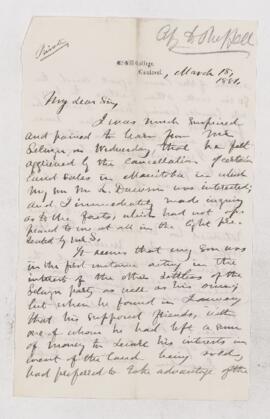 Private
McGill College,
Montreal, March 18, 1881.
My dear Sir,
I was much surprised
and pained to learn from Mr
Selwyn on Wednesday that he felt
aggrieved by the cancellation of certain
land sales in Manitoba in which
my son Mr. Dawson was interested;
and I immediately made inquiry
as to the facts, which had not ap-
peared to me at all in the light pre-
sented by Mr S.
It seems that my son was
in the first instance acting in the
interests of the other settlers of the
Selwyn party as well as his own;
but when he found in January
that his supposed friends, with
one of whom he had left a sum
of money to secure his interests in
event of the land being sold,
had preferred to take advantage of the